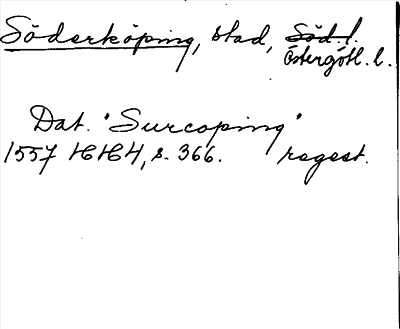 Söderköping, stad, Söd. l.
Östergötl. l.
Dat. "Surcoping"
1557 HH4, s. 366. regest.